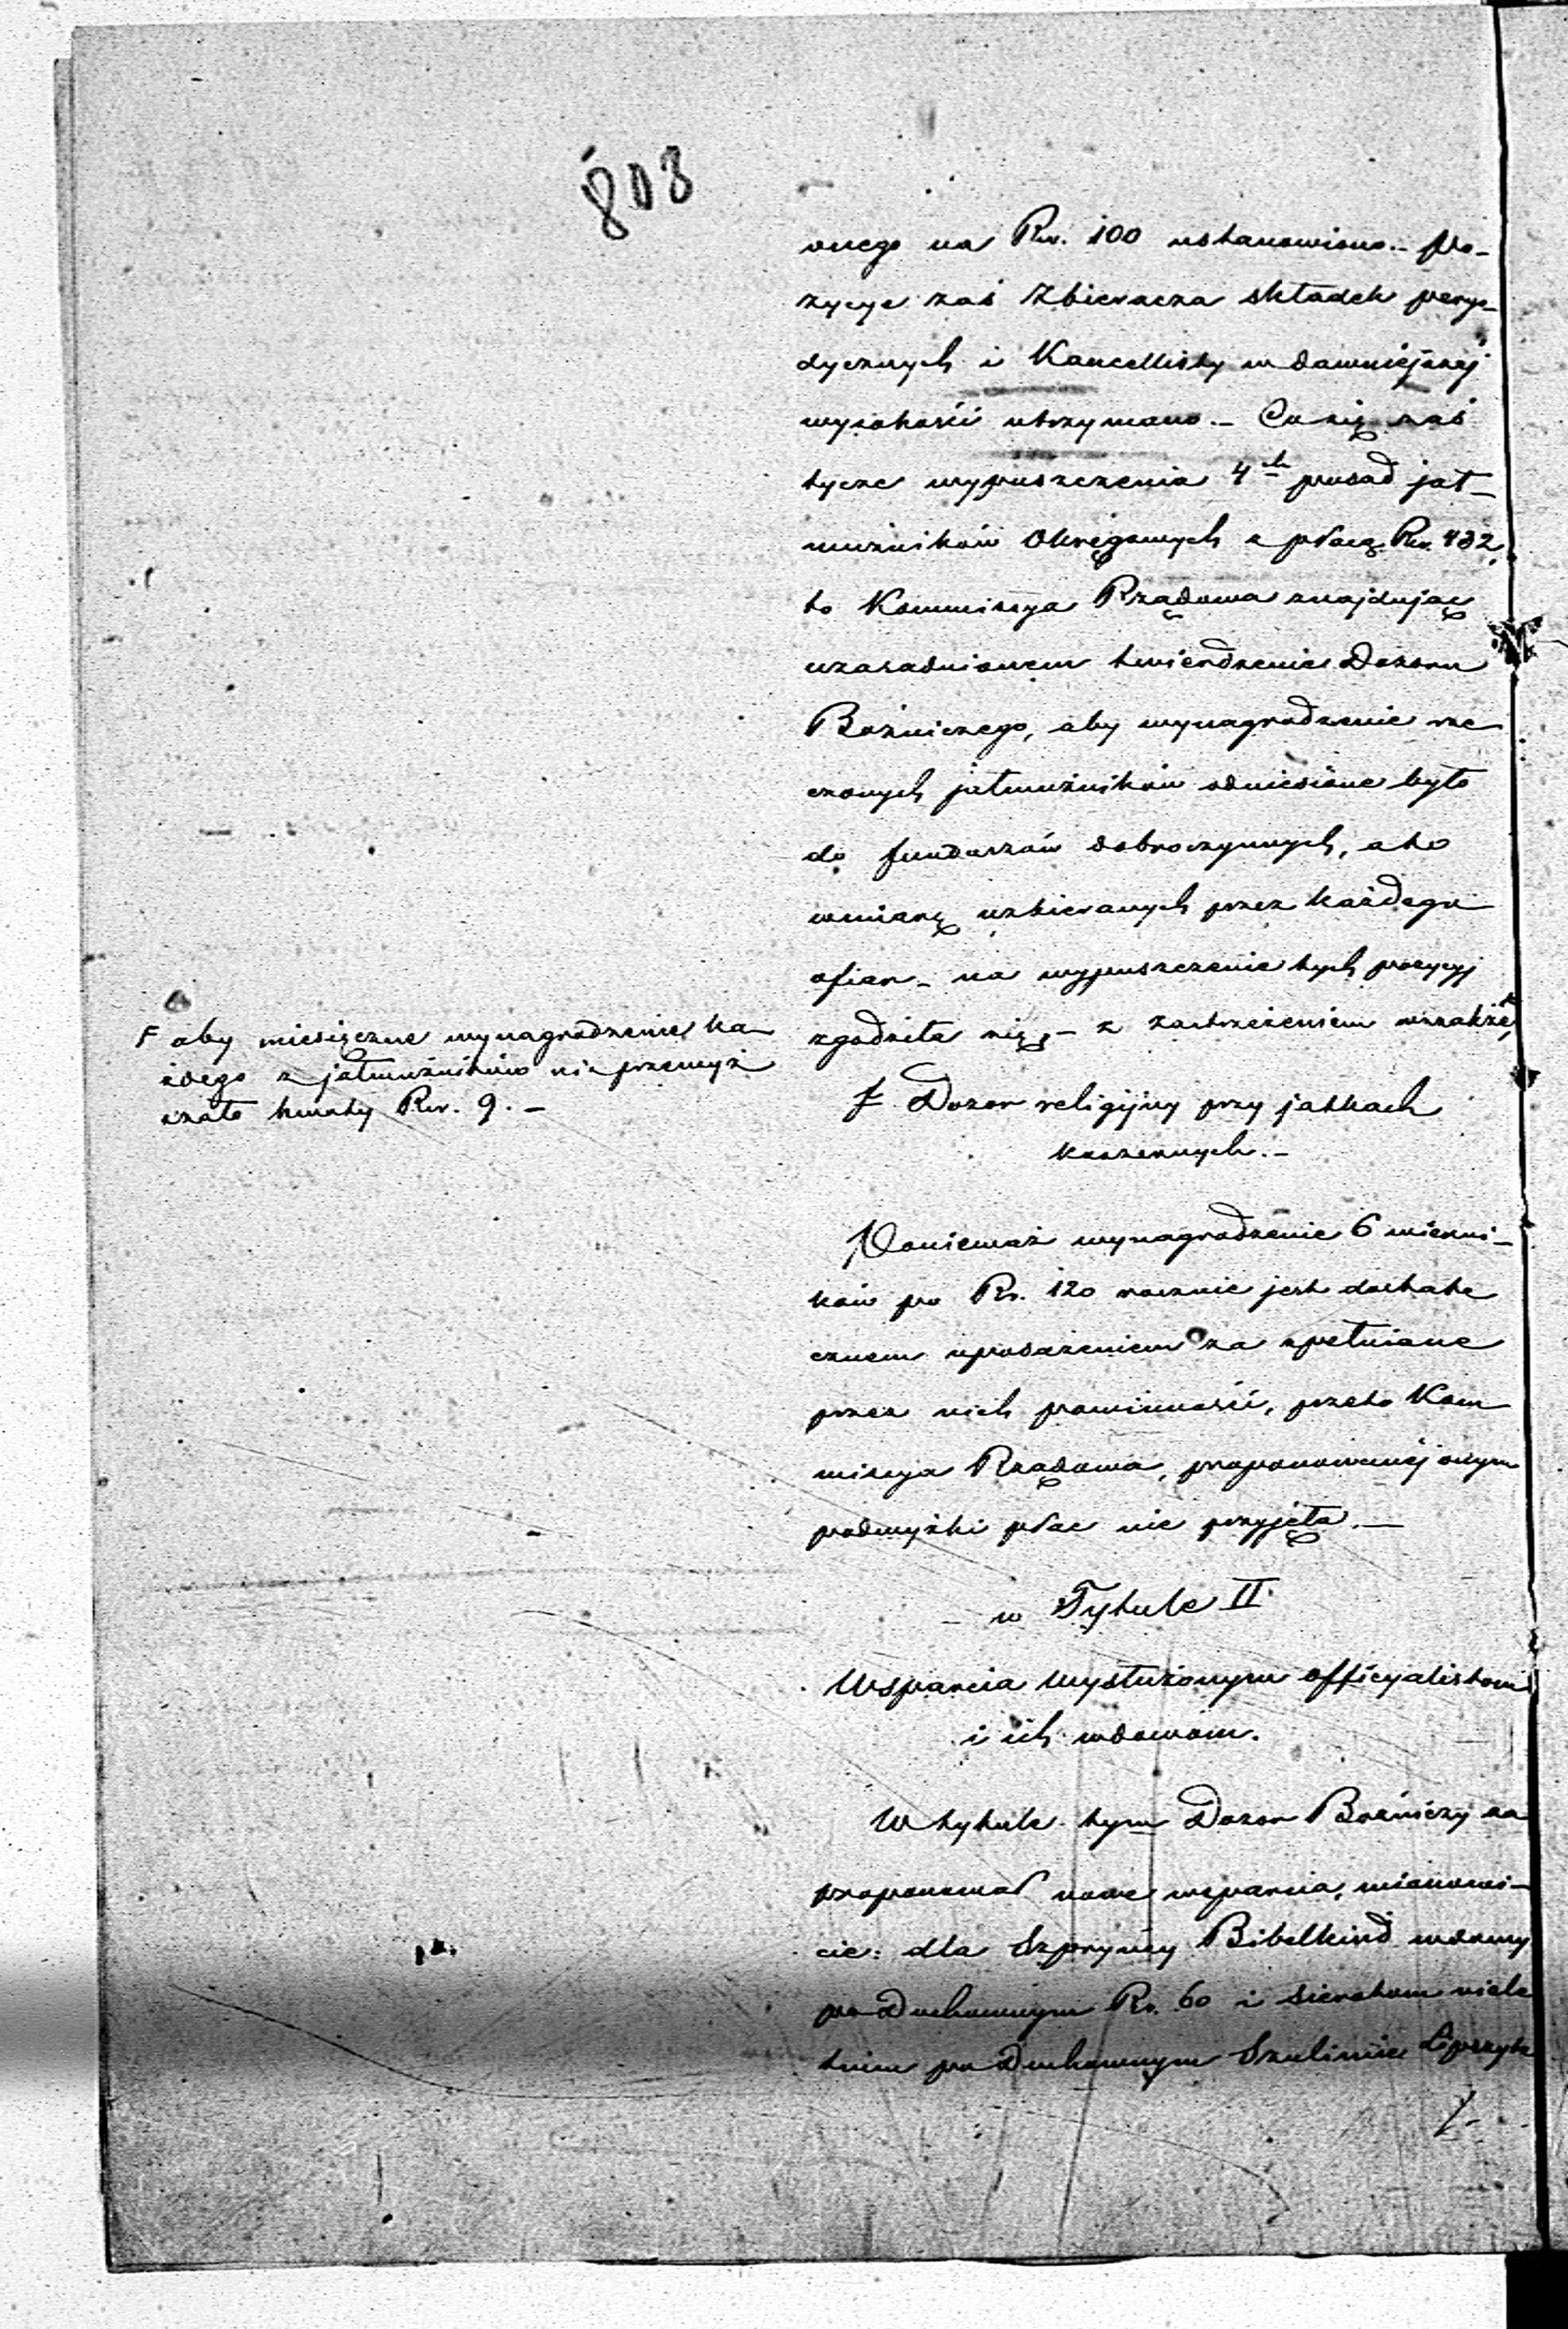 803
onego na Rsr. 100 ustanowiono.- Po-
zycye zaś Zbieracza składek peryo-
dycznych i Kancellisty w dawniejszej
wysokości utrzymano.- Co się zaś
tycze wypuszczenia 4ch posad jał-
mużników Okręgowych z płacą Rsr. 432,
to Kommissya Rządowa znajdując
uzasadnionem twierdzenie Dozoru
Bożniczego, aby wynagrodzenie rze
czonych jałmużników odniesione było
do funduszów dobroczynnych, a to
wmiarę uzbieranych przez każdego
ofiar - na wypuszczenie tych pozycyj
zgodziła się, - z zastrzeżeniem wszakże,
F aby miesięczne wynagrodzenie ka-
żdego z jałmużników nie przewyż
szało kwoty Rsr. 9. -
f. Dozor religijny przy jatkach
koszernych.-
Ponieważ wynagrodzenie 6 wierni-
ków po Rs. 120 rocznie jest dostate
cznem uposażeniem za spełniane
przez nich powinności, przeto Kom
missya Rządowa, proponowanej onym
podwyżki płac nie przyjęła.-
w Tytule II.
Wsparcia wysłużonym officyalistom
i ich wdowom.
W tytule tym Dozor Bożniczy za
proponował nowe wsparcia, mianowi-
cie: dla Szpryncy Bibelkind wdowy
po Duchownym Rs. 60 i sierotom niele
tnim po Duchownym Szulimie Lipszyc